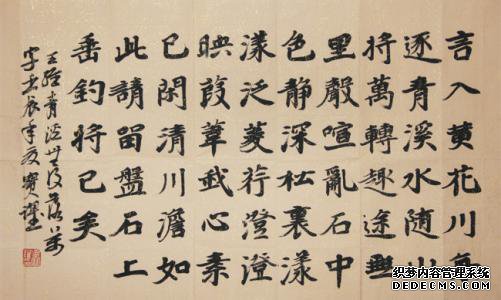 言入黃花川每
逐青溪水隨山
將萬轉趣途無
里聲喧亂石中
色靜深松裏漾
漾泛菱荇澄澄
映葭葦我心素
已閑清川澹如
此請留盤石上
垂釣將已矣
王維青溪無後落百
字辰年夏寶
织梦内容管理系统
DEDECMS.COM